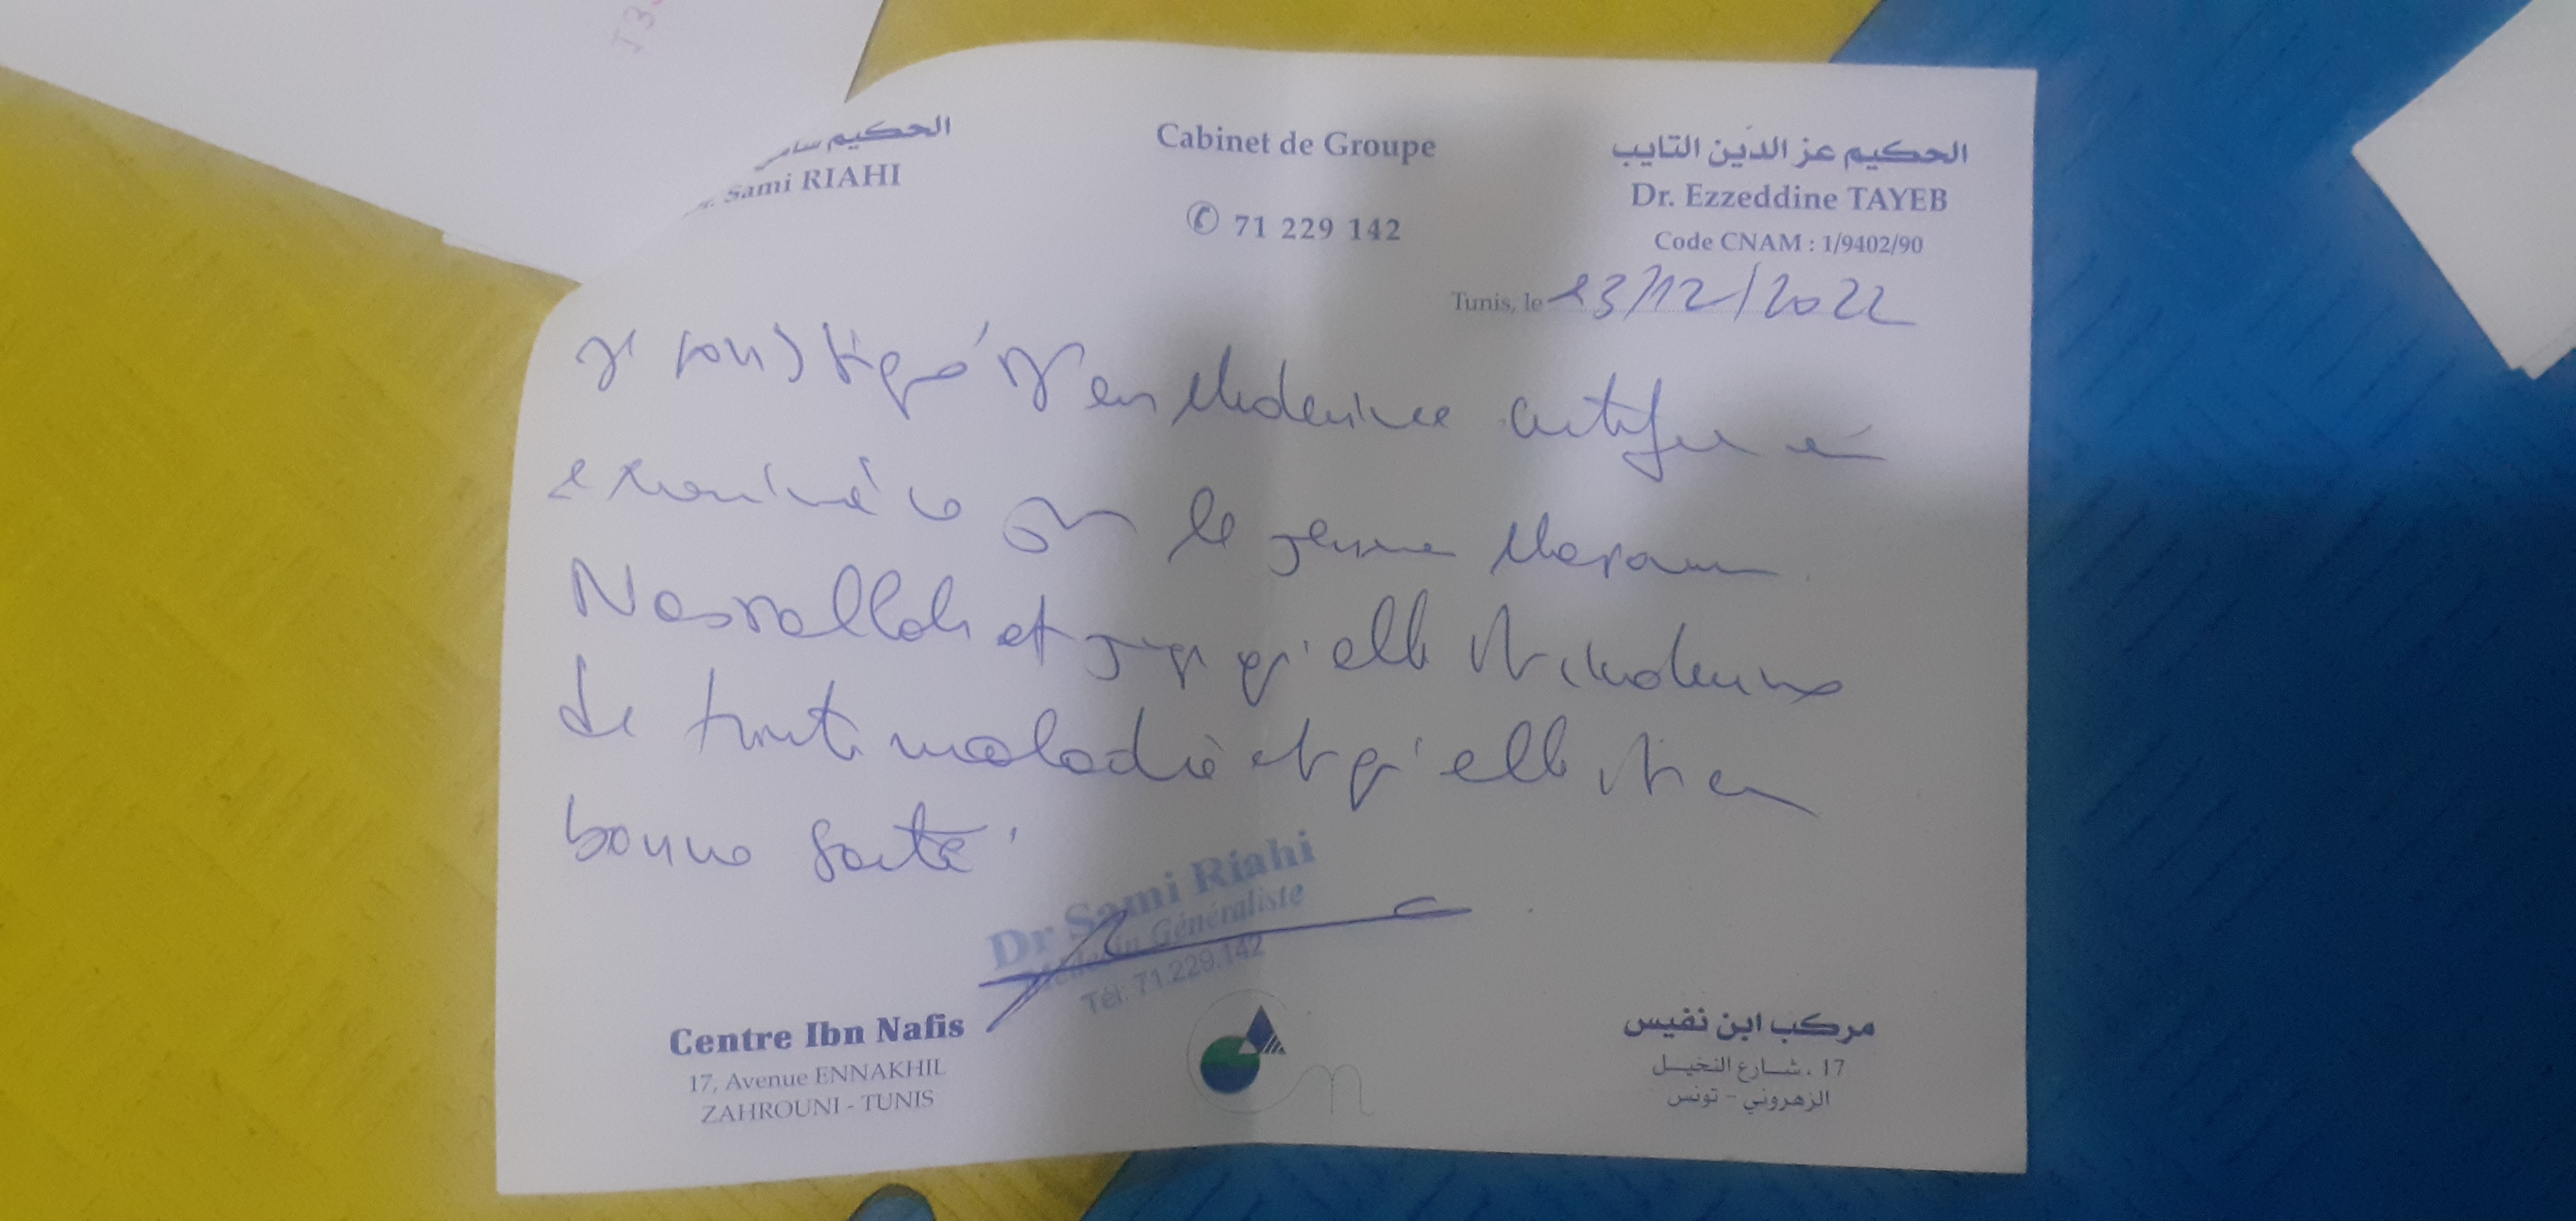 الحكيم سامي
Dr. Sami RIAHI
Cabinet de Groupe
✆ 71 229 142
الحكيم عز الدين التايب
Dr. Ezzeddine TAYEB
Code CNAM : 1/9402/90
Tunis, le 13/12/2022
Je soussigné Dr en Médecine certifie
examiné ce le jeune
Nasrallah et juge qu'elle est indemne
de toute maladie et qu'elle est en
bonne santé.
Dr Sami Riahi
Médecin Généraliste
Tél: 71.229.142
Centre Ibn Nafis
17, Avenue ENNAKHIL
ZAHROUNI - TUNIS
مركب ابن نفيس
17 ، شارع النخيل
الزهروني - تونس